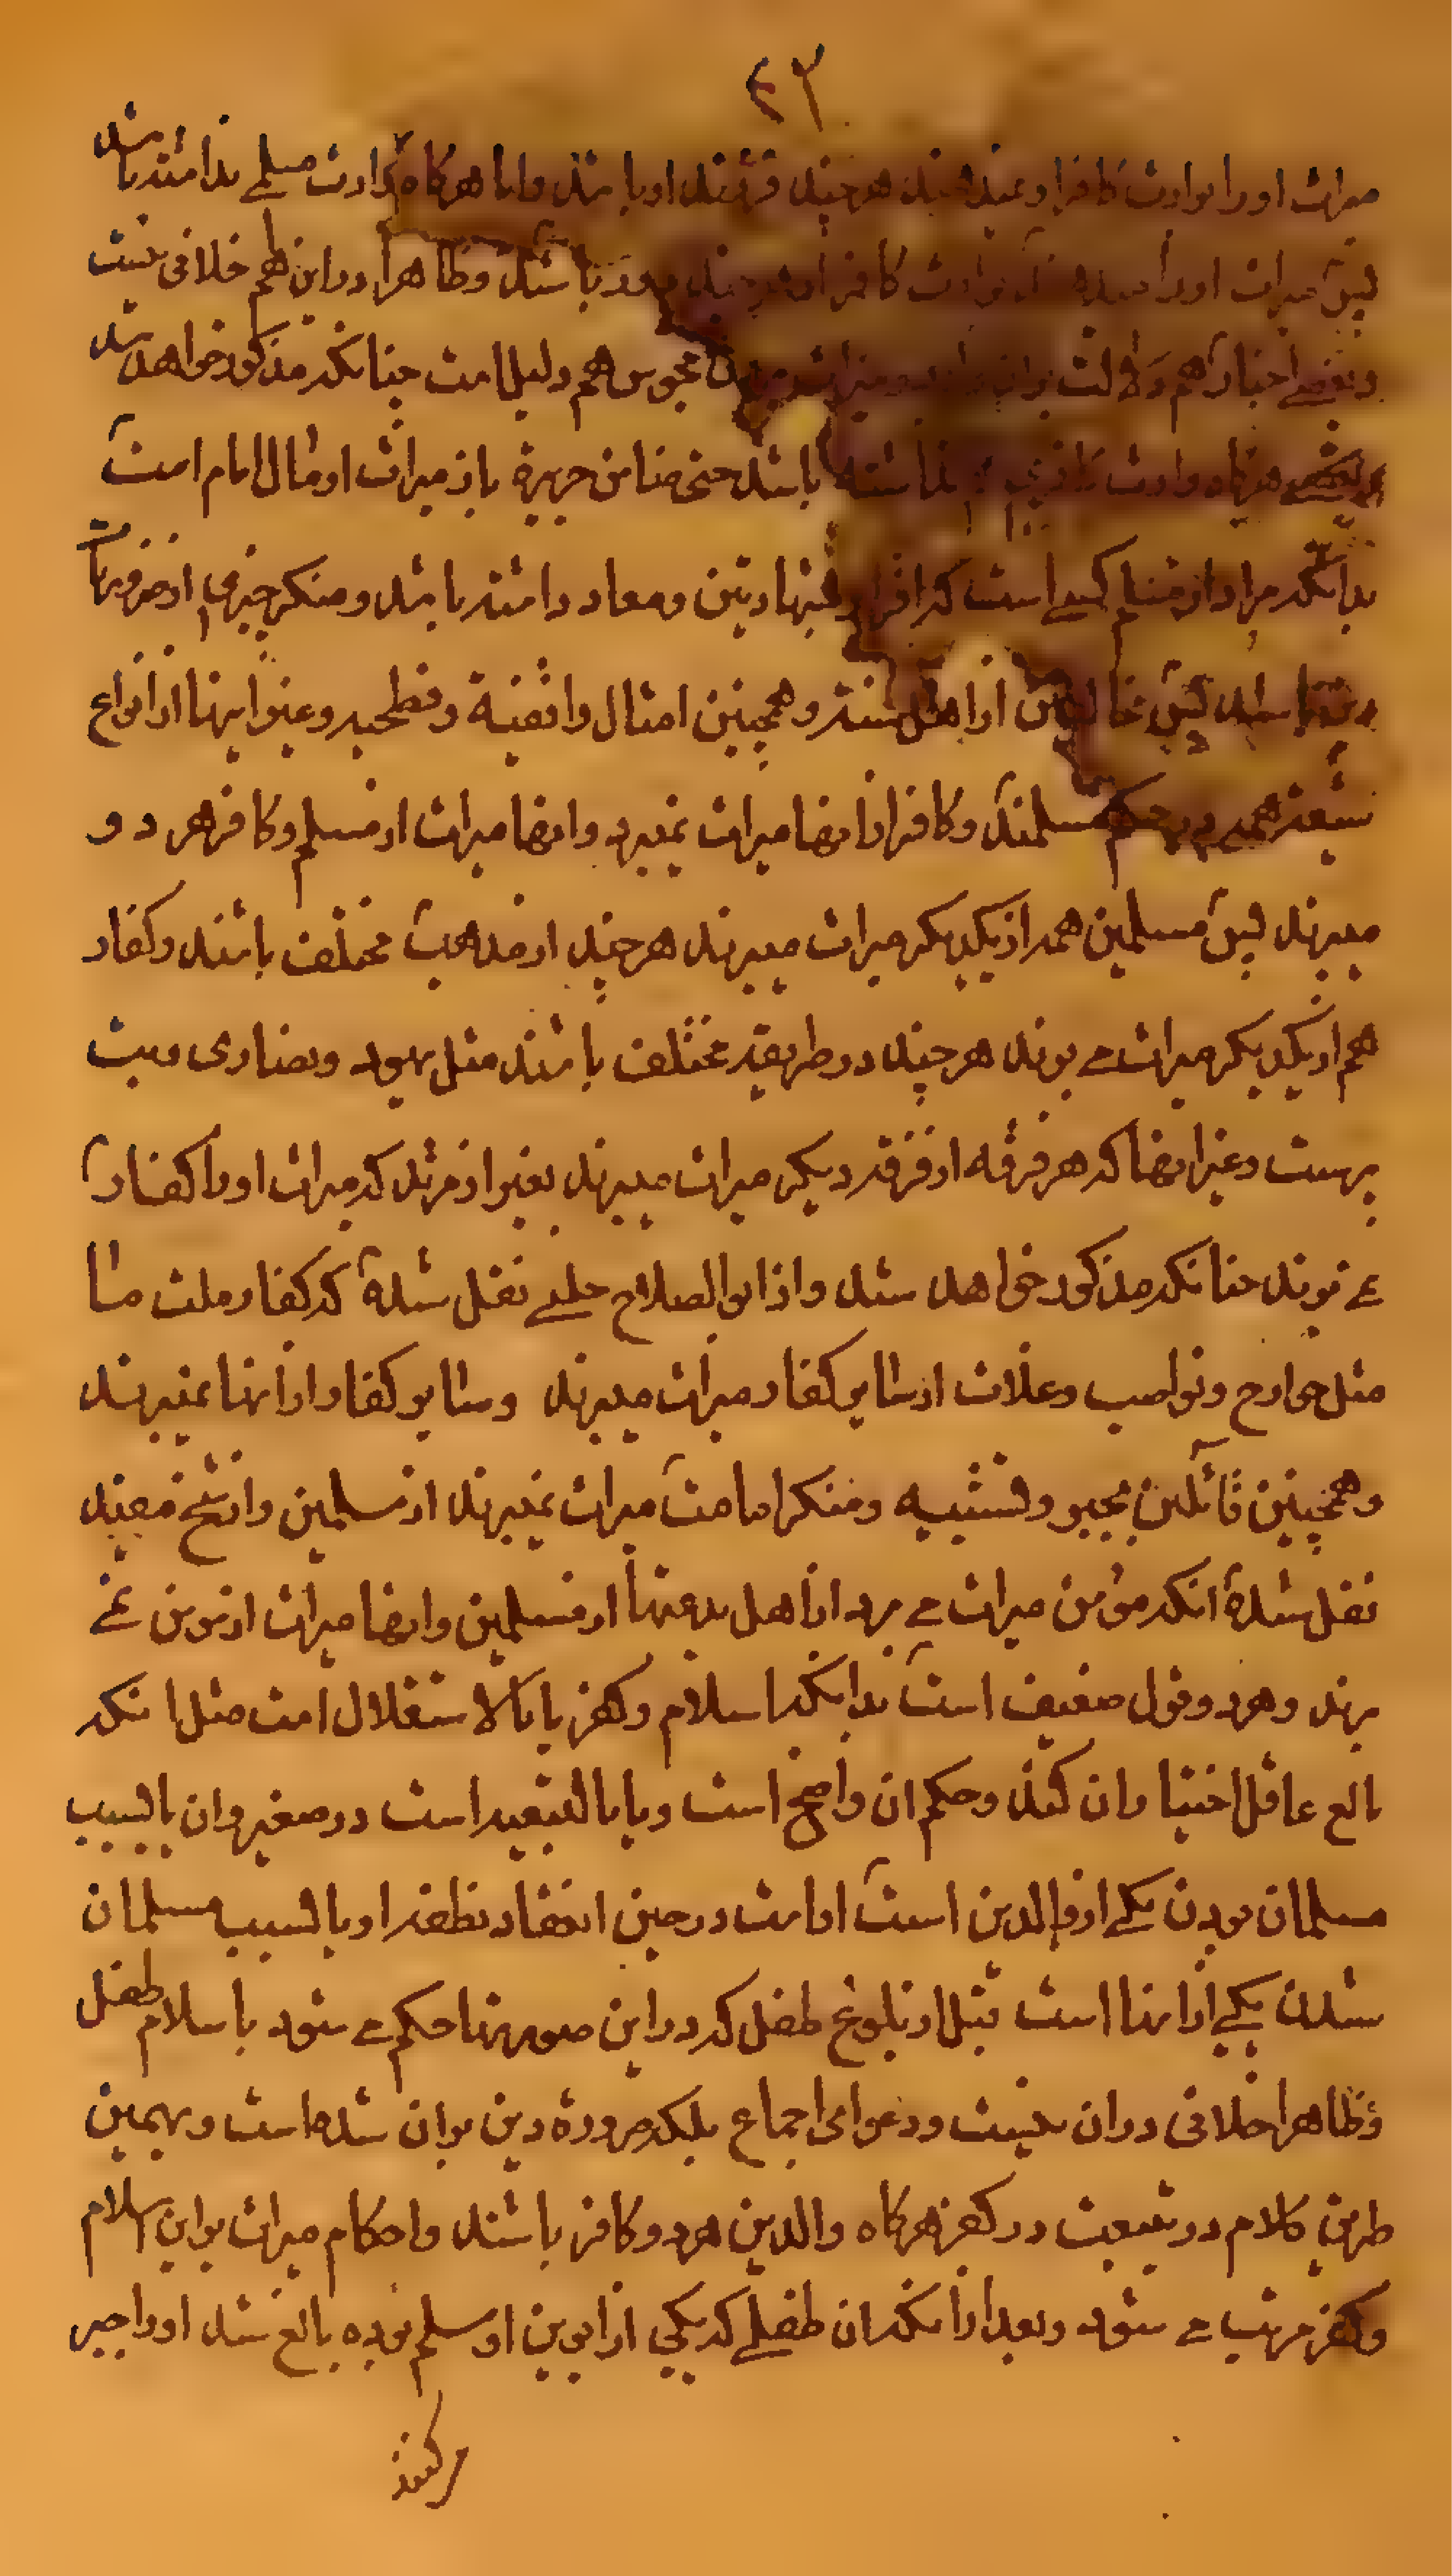 ۲۴
میراث او را بوارث کافر او نمیدهند هر چند فرزند او باشد و اما هرگاه وارث مسلمی نداشته باشد
پس میراث او را میدهند بوارث کافر او هر چند مرتد باشد و ظاهرا در این هم خلافی نیست
و بعضی اخبار هم دلالت بران دارد و میراث بردن مجوس هم دلیل است چنانکه مذکور خواهد شد
هرگاه وارث نداشته باشد حتی ضامن جریرة باز میراث او مال امام است
بدانکه مراد از مسلم کسی است که اقرار بشهادتین و معاد داشته باشد و منکر چیزی از ضروریات
دین نباشد پس مخالفین از اهل سنة و همچنین امثال واقفیة و فطحیه و غیر اینها از انواع
شیعه همه در حکم مسلمند و کافر از انها میراث نمیبرد و انها میراث از مسلم و کافر هر دو
میبرند پس مسلمین همه از یکدیگر میراث میبرند هر چند از مذهب مختلف باشند و کفار
هم از یکدیگر میراث می برند هر چند در طریقه مختلف باشند مثل یهود و نصاری و بت
پرست و غیر انها که هر فرقه از فرقه دیگر میراث میبرند بغیر از مرتد که میراث او را کفار
نمی برند چنانکه مذکور خواهد شد و از ابو الصلاح حلبی نقل شده که کفار ملت ما
مثل خوارج و نواصب و غلات از سایر کفار میراث میبرند و سایر کفار از انها نمیبرند
و همچنین قائلین بجبر و تشبیه و منکر امامت میراث نمیبرند از مسلمین و از شیخ مفید
نقل شده انکه مؤمن میراث می برد از اهل بدعتها از مسلمین و انها میراث از مؤمن نمی
برند و هر دو قول ضعیف است بدانکه اسلام و کفر یا بالاستقلال است مثل انکه
بالغ عاقل اختیار ان کند و حکم ان واضح است و یا بالتبعیه است در صغیر و ان یا بسبب
مسلمان بودن یکی از والدین است او است در حین انعقاد نطفه او یا بسبب مسلمان
شدن یکی از انها است قبل از بلوغ طفل که در این صورتها حکم می شود باسلام طفل
و ظاهرا خلافی در ان نیست و دعوای اجماع بلکه ضرورة دین بر ان شده است و بهمین
طریق کلام در تبعیت در کفر هرگاه والدین هر دو کافر باشند و احکام میراث بر این اسلام
و کفر مرتب می شود و بعد از انکه ان طفلی که یکی از ابوین او مسلم بوده بالغ شد او را جبر